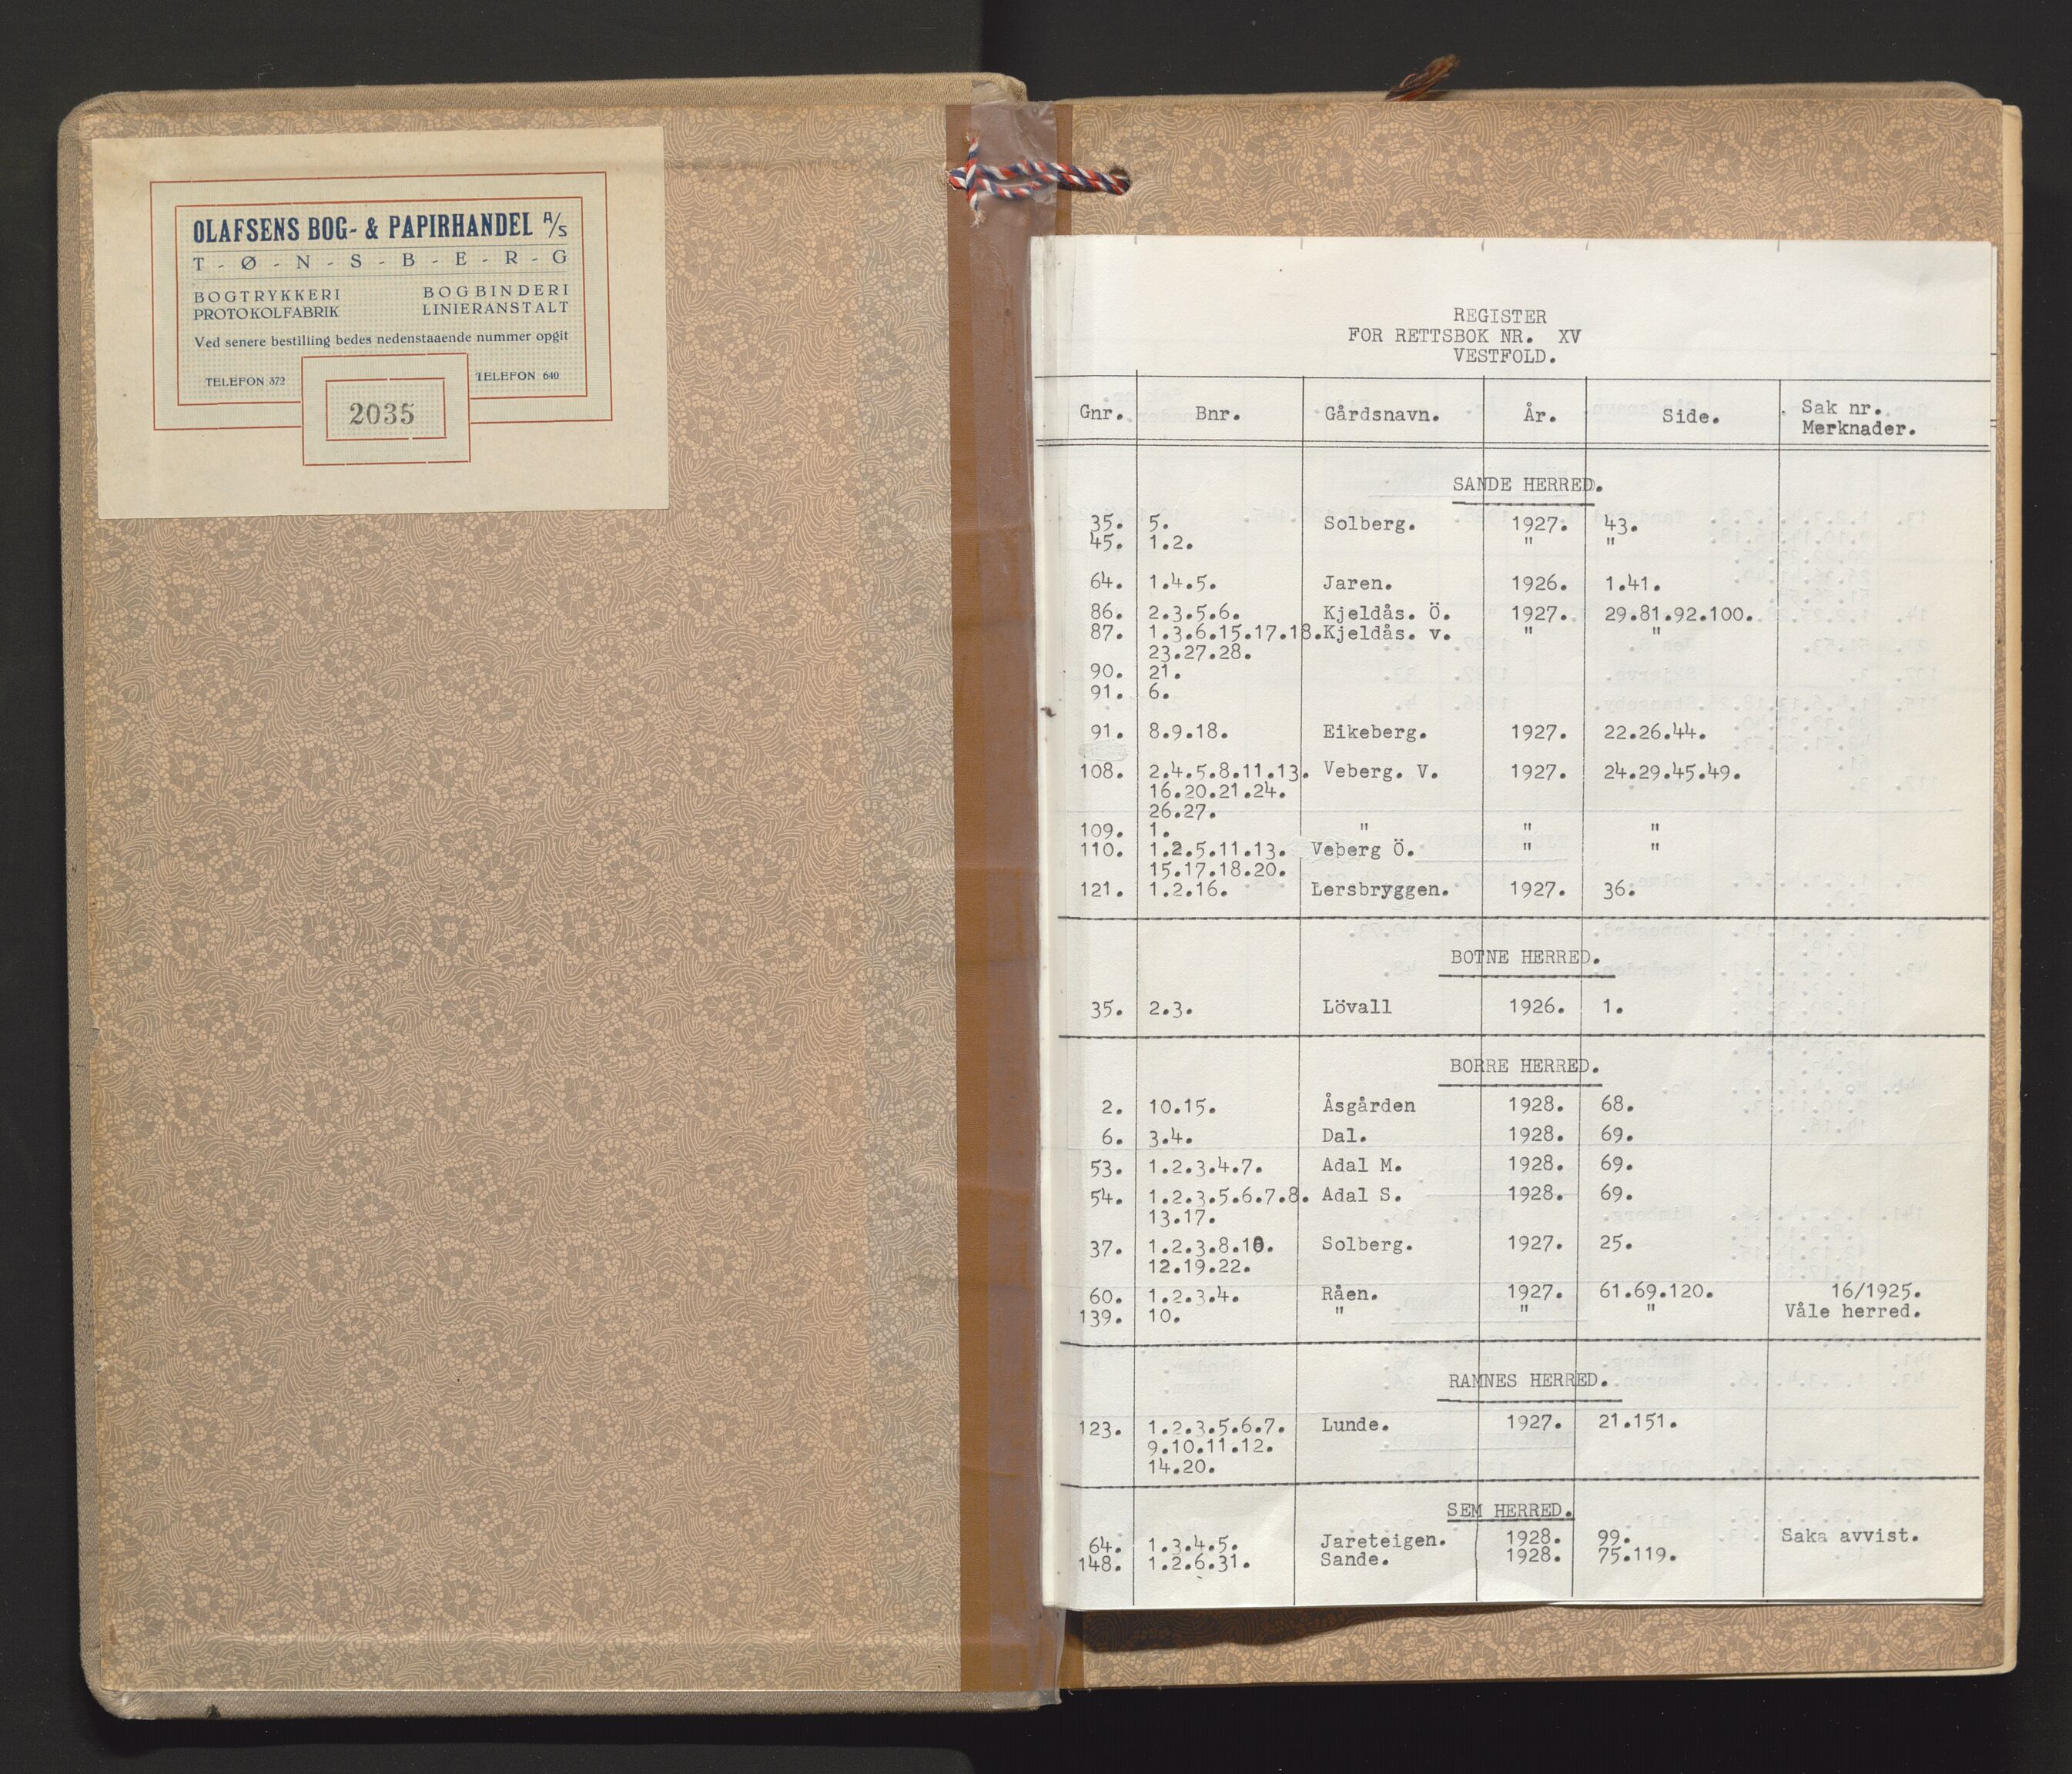 OLAFSENS BOG- & PAPIRHANDEL A/S
T - Ø - N - S - B - E - R - G
BOGTRYKKERI BOGBINDERI
PROTOKOLFABRIK LINIERANSTALT
Ved senere bestilling bedes nedenstaaende nummer opgit
TELEFON 372 TELEFON 640
2035
REGISTER
FOR RETTSBOK NR. XV
VESTFOLD.
Gnr. Bnr. Gårdsnavn. År. Side. Sak nr.
Merknader.
SANDE HERRED.
35. 5. Solberg. 1927. 43.
45. 1.2. " "
64. 1.4.5. Jaren. 1926. 1.41.
86. 2.3.5.6. Kjeldås. Ö. 1927. 29.81.92.100.
87. 1.3.6.15.17.18. Kjeldås. v. " "
23.27.28.
90. 21.
91. 6.
91. 8.9.18. Eikeberg. 1927. 22.26.44.
108. 2.4.5.8.11.13. Veberg. V. 1927. 24.29.45.49.
16.20.21.24.
26.27.
109. 1. " " "
110. 1.2.5.11.13. Veberg Ö. " "
15.17.18.20.
121. 1.2.16. Lersbryggen. 1927. 36.
BOTNE HERRED.
35. 2.3. Lövall 1926. 1.
BORRE HERRED.
2. 10.15. Åsgården 1928. 68.
6. 3.4. Dal. 1928. 69.
53. 1.2.3.4.7. Adal M. 1928. 69.
54. 1.2.3.5.6.7.8. Adal S. 1928. 69.
13.17.
37. 1.2.3.8.10. Solberg. 1927. 25.
12.19.22.
60. 1.2.3.4. Råen. 1927. 61.69.120. 16/1925.
139. 10. " " " Våle herred.
RAMNES HERRED.
123. 1.2.3.5.6.7. Lunde. 1927. 21.151.
9.10.11.12.
14.20.
SEM HERRED.
64. 1.3.4.5. Jareteigen. 1928. 99. Saka avvist.
148. 1.2.6.31. Sande. 1928. 75.119.